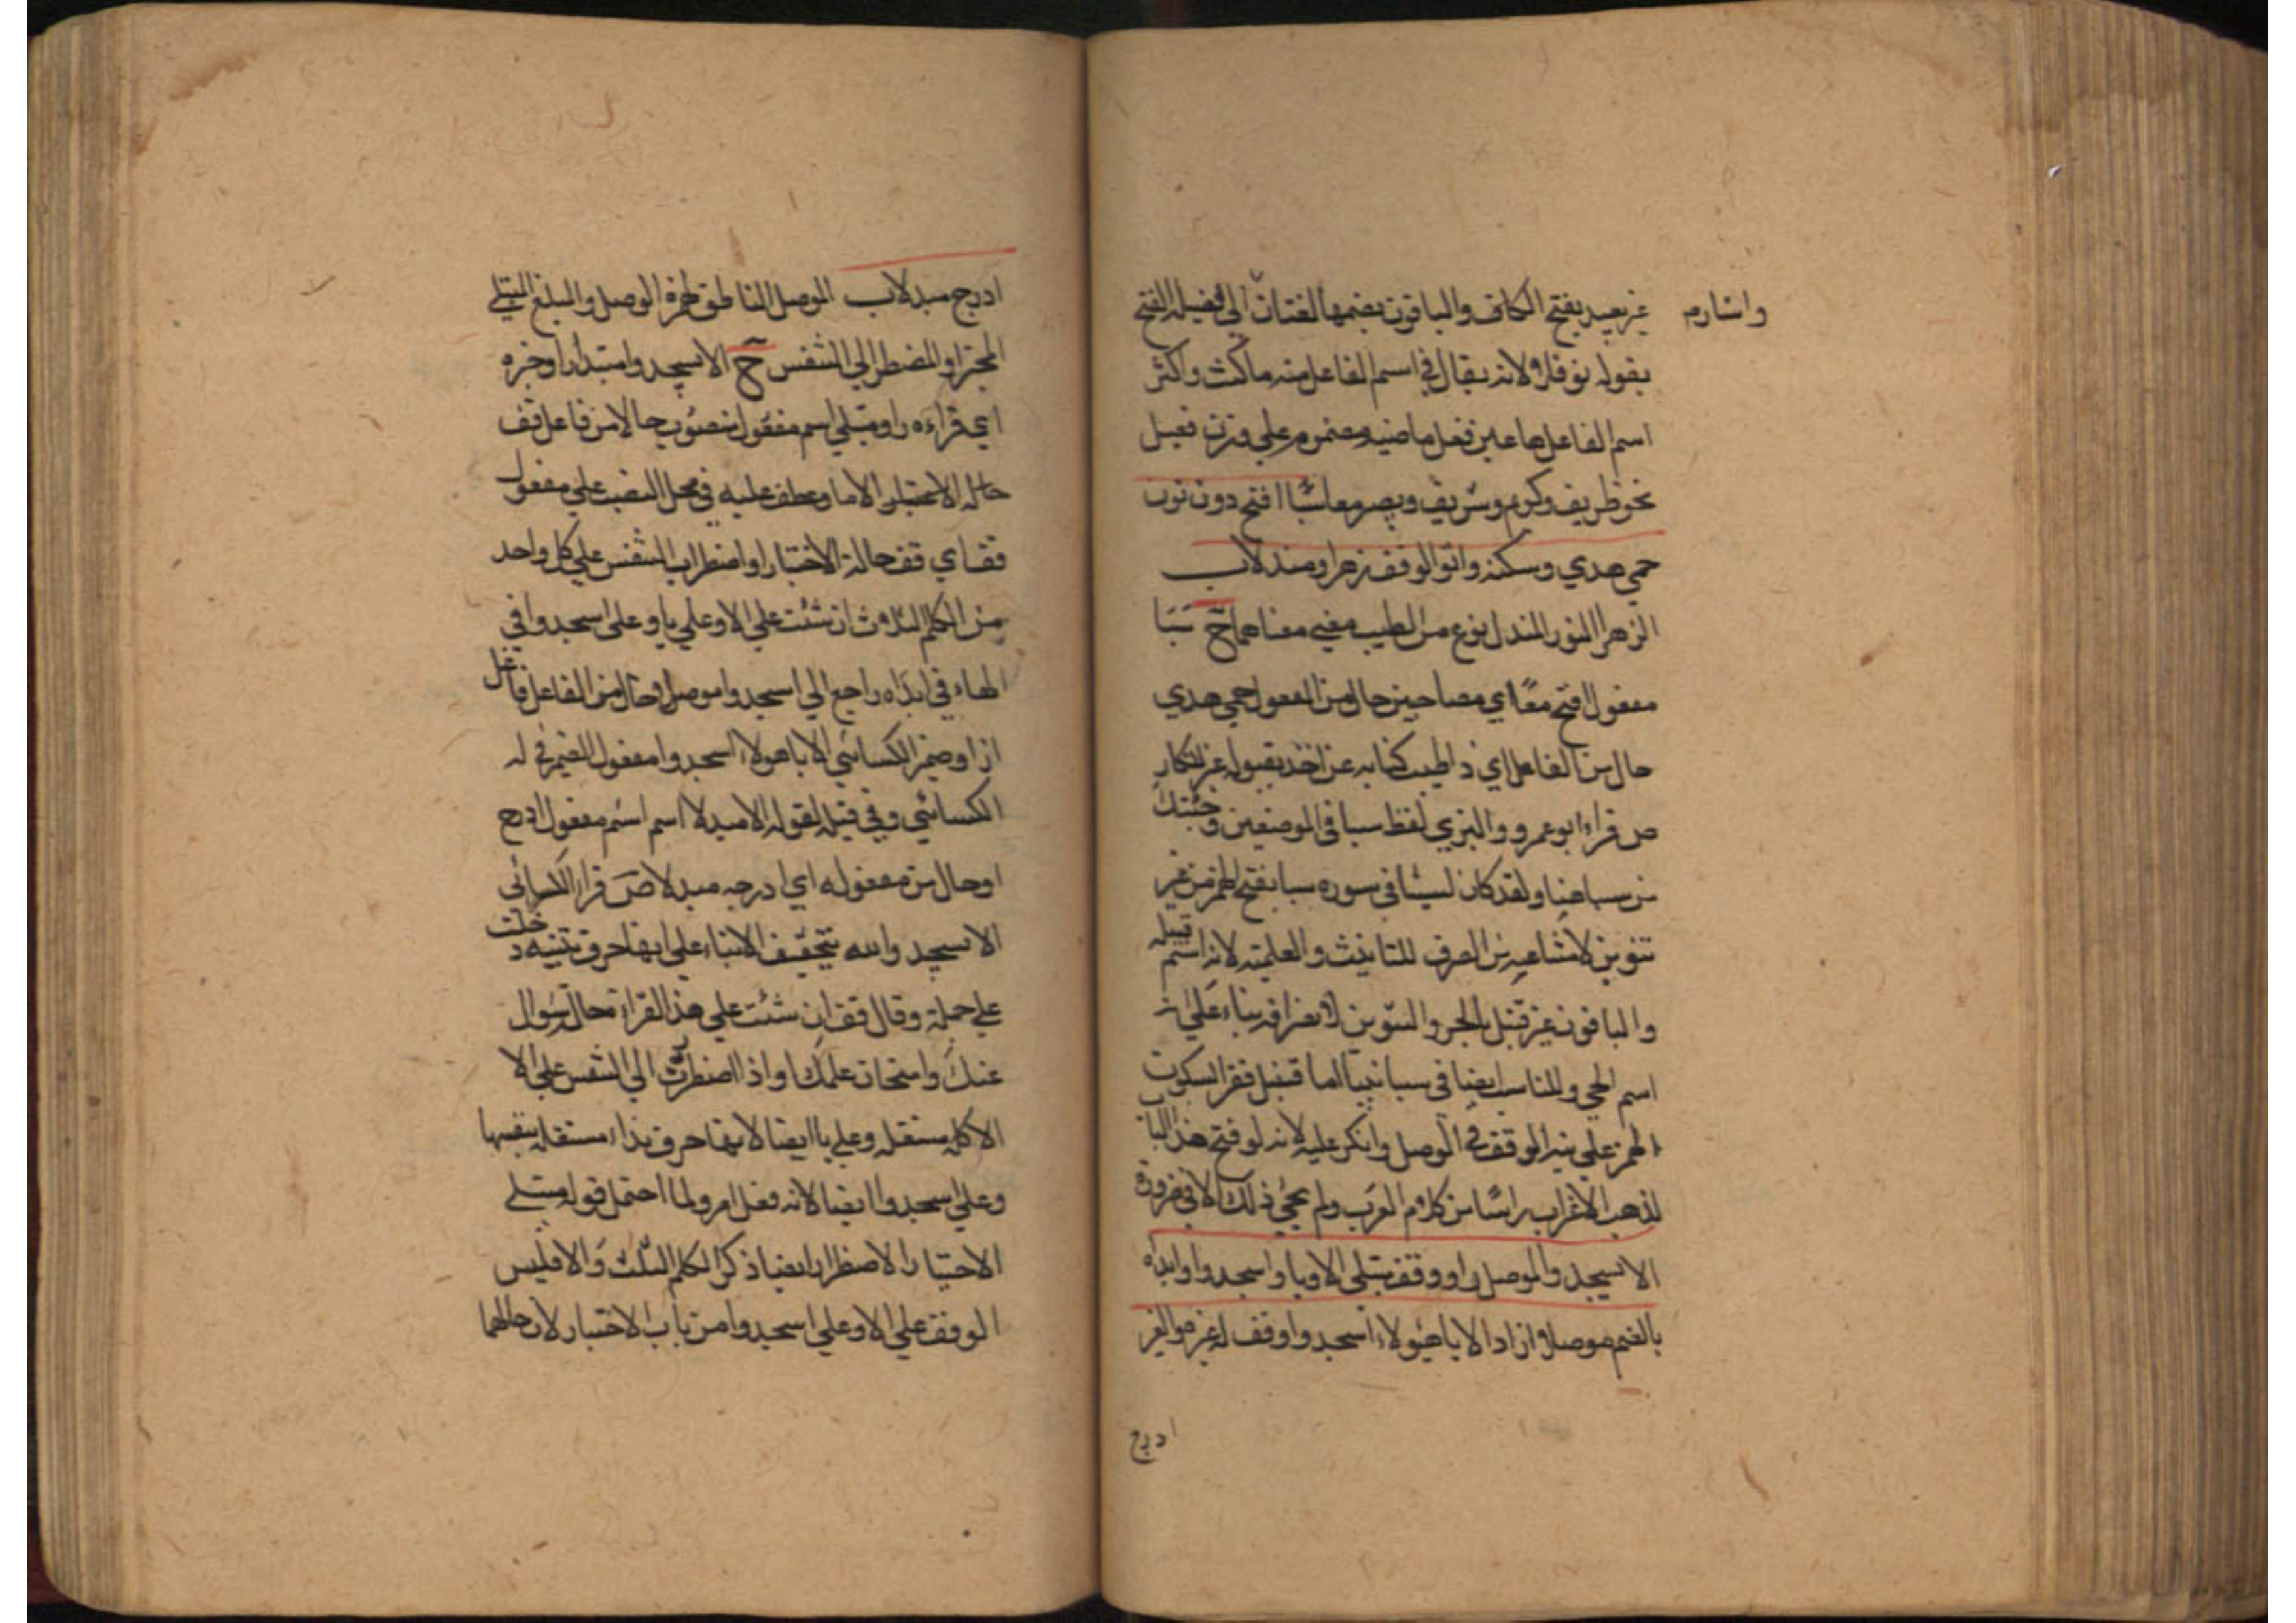 غير بعيد بفتح الكاف والباقون بضمها لغتان الي فضيله الفتح
واشار
بقوله نوفلا ولانه يقال في اسم الفاعل منه ماكث واكثر
اسم الفاعل مما عين فعل ماضيه مضموم علي وزن فعيل
نحو ظريف وكرم وشريف وبصر معا سبا افتح دون نون
حمي هدي وسكنه وانو الوقف زهرا ومندلا ب
الزهر النور المندل نوع من الطيب مضي معناهما ح سبا
مفعول افتح معا اي مصاحبين حال من المفعول حمي هدي
حال من الفاعل اي ذا طيب كنايه عن اخذ بقبوله غير انكار
ص قراء ابو عمرو والبزي لفظ سبا في الموضعين وجئتك
من سبا هنا ولقد كان لسبا في سوره سبا بفتح الهمز من غير
تنوين لامتناعه من الصرف للتانيث والعلميه لانه اسم قبيله
والباقون غير قنبل بالجر والتنوين لانصرافه بناء علي انه
اسم الحي وللناس ايضا في سبا نبيا اما قنبل فقرا بسكون
الهمز علي نيه الوقف في الوصل وانكر عليه لانه لو فتح هذا الباب
لذهب الاعراب راسا من كلام العرب ولم يجي ذلك الا في ضرورة
الا يسجد والموصل راو وقف مبتلي الا ويا واسجدوا وابداه
بالضم موصلا اراد الا يا هؤلاء اسجدوا وقف له غيره والغير
ادرج
ادرج مبدلا ب الموصل الناطق همزة الوصل والمبلغ المبتلي
المختبر او المضطر الي النفس ح الا يسجدوا مبتدا راو خبره
اي قراءه راو مبتلي اسم مفعول منصوب حالا من فاعل قف
حاله الاختبار الا وما عطف عليه في محل النصب علي مفعول
قف اي قف حالة الاختبار او اضطراب النفس علي كل واحد
من الكلم الثلاث ان شئت علي الا وعلي يا وعلي اسجدوا في
الهاء في ابداه راجع الي اسجدوا موصلا حال من الفاعل فاعل
اراد ضمير الكسائي الا يا هولاء اسجدوا مفعول الضمير في له
الكسائي وفي قبله لقوله الا مبدلا اسم اسم مفعول ادرج
او حال من مفعوله اي ادرجه مبدلا ص قرا الكسائي
الا يسجدوا لله بتخفيف الا بناء علي انها حرف تنبيه دخلت
علي جملة وقال قف ان شئت علي هذا القراءة حال سؤال
عنك وامتحان علمك او اذا اضطررت الي النفس علي الا
الا كلمه مستقله وعلي يا ايضا لانها حرف نداء مستقله بنفسها
وعلي اسجدوا ايضا لانه فعل امر ولما احتمل قوله مبتلي
الاختبار الاضطرار ايضا ذكر الكلم الثلث والا فليس
الوقف علي الا وعلي اسجدوا من باب الاختبار لان حالهما